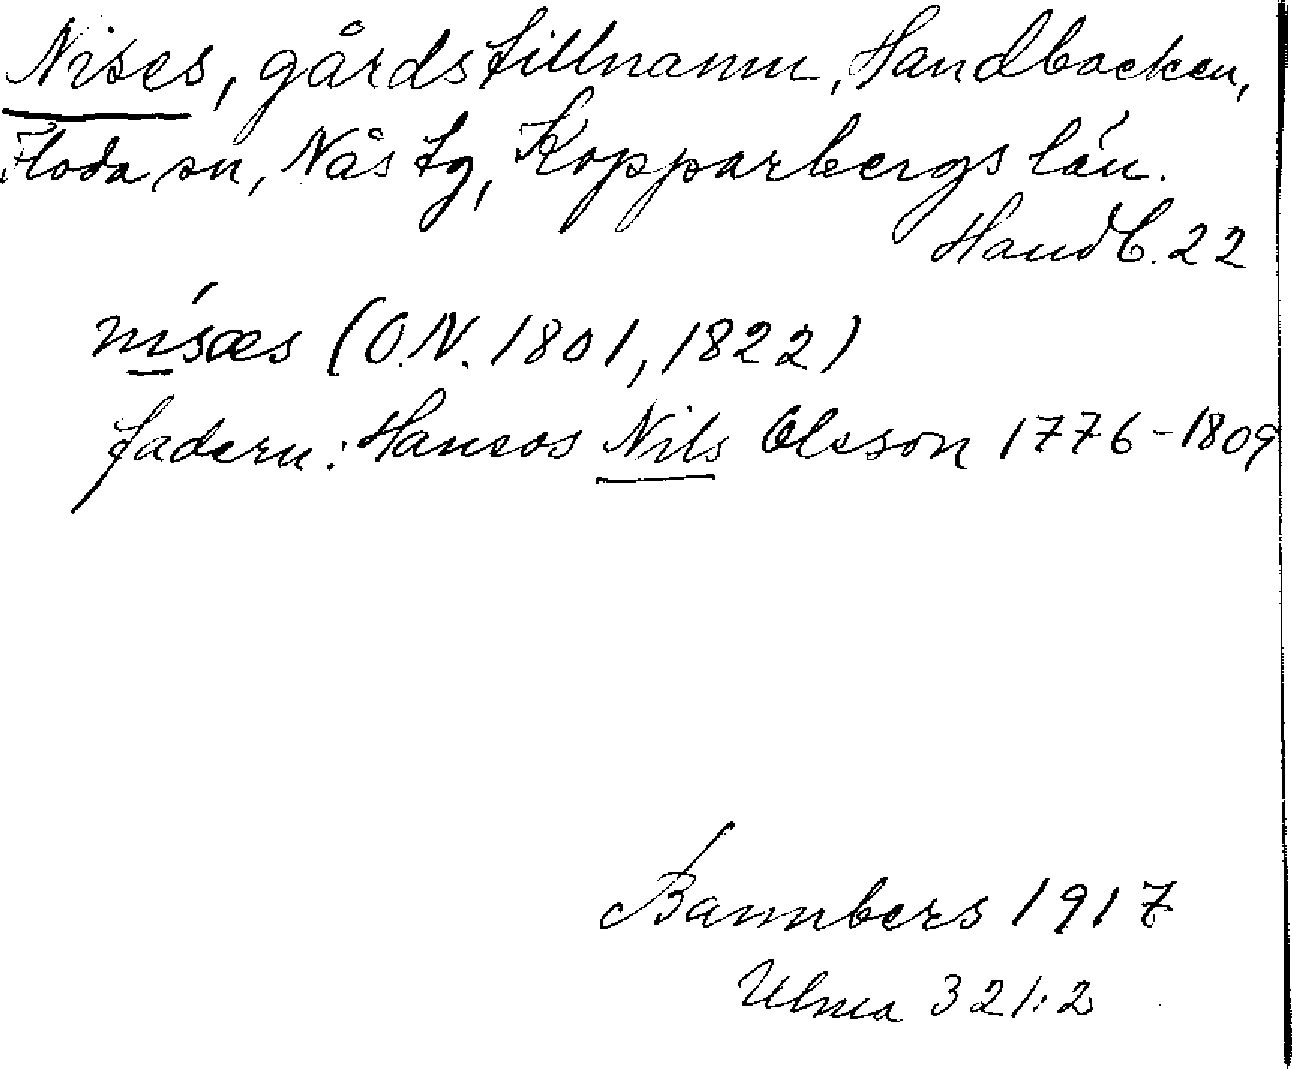 Nises, gårdstillnamn, Handbacken,
Floda sn, Nås tg, Kopparbergs län.
Handb. 22
nísæs (O.N. 1801, 1822)
fadern: Hansos Nils Olsson 1776-1809
Bannbers 1917
Ulma 321:2